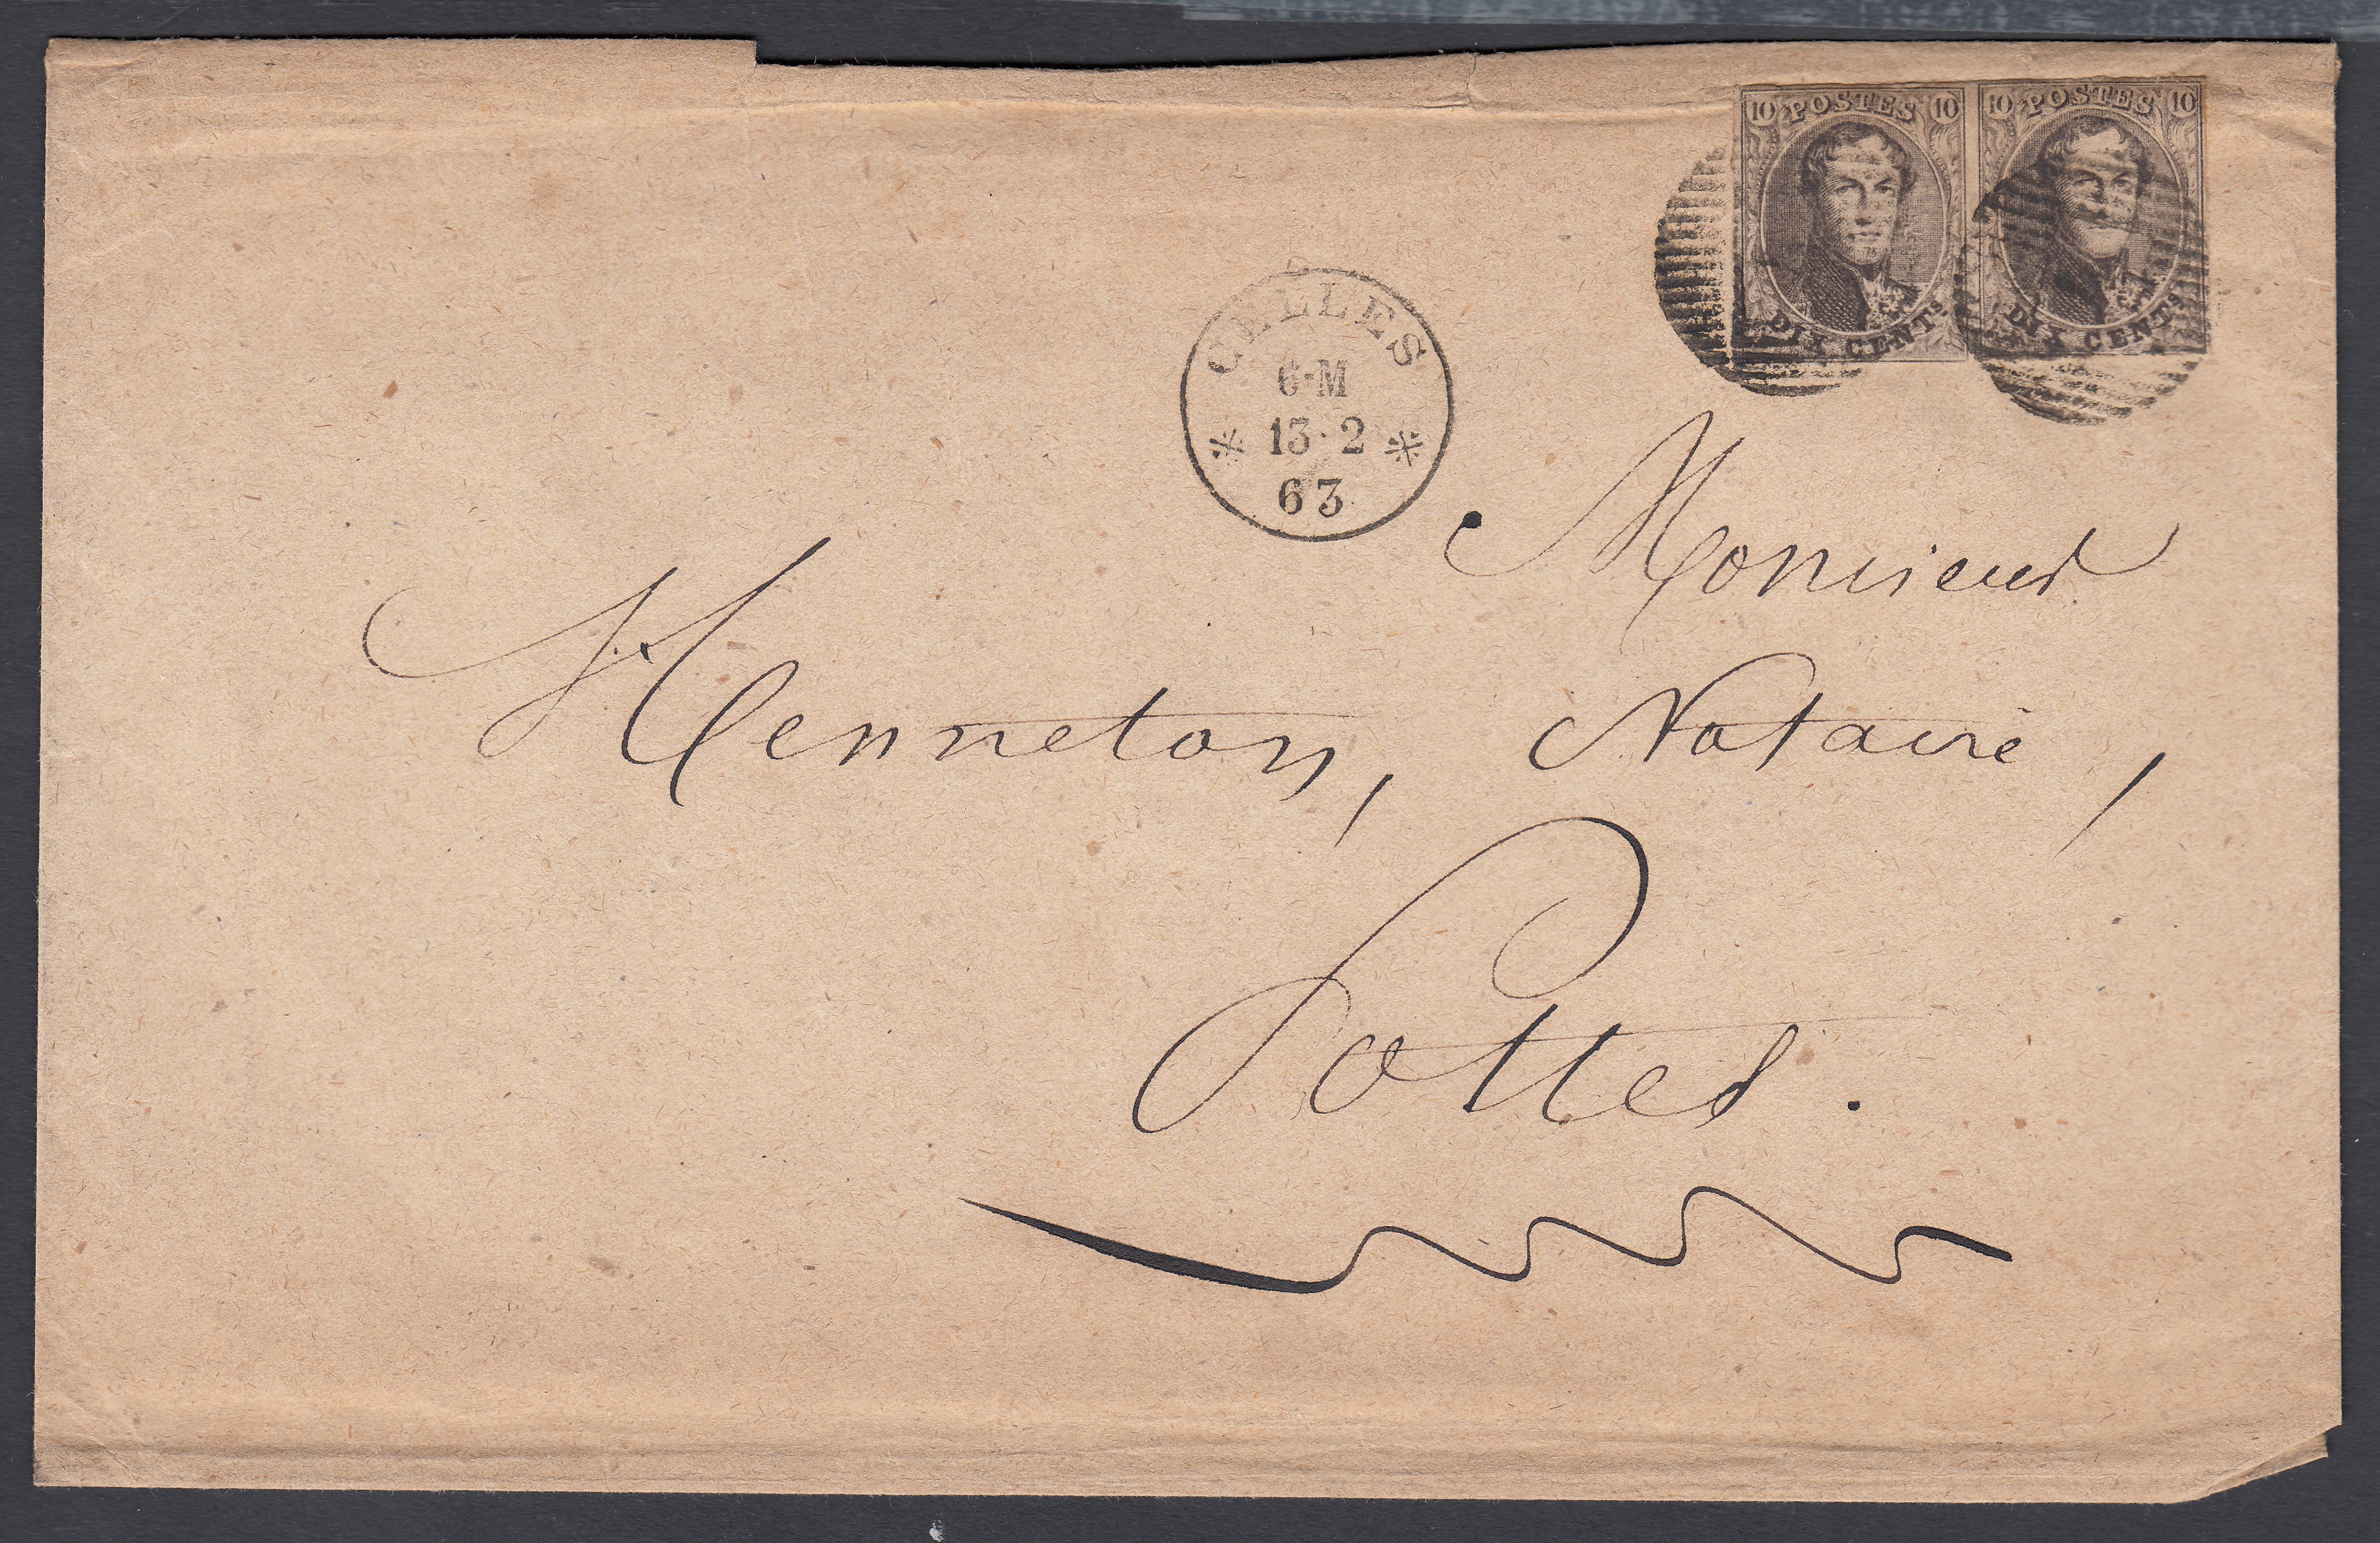 10 POSTES 10
DIX CENTS
10 POSTES 10
DIX CENTS
CELLES
6-M
13·2
63
Monsieur
Henneton, Notaire,
Pottes.